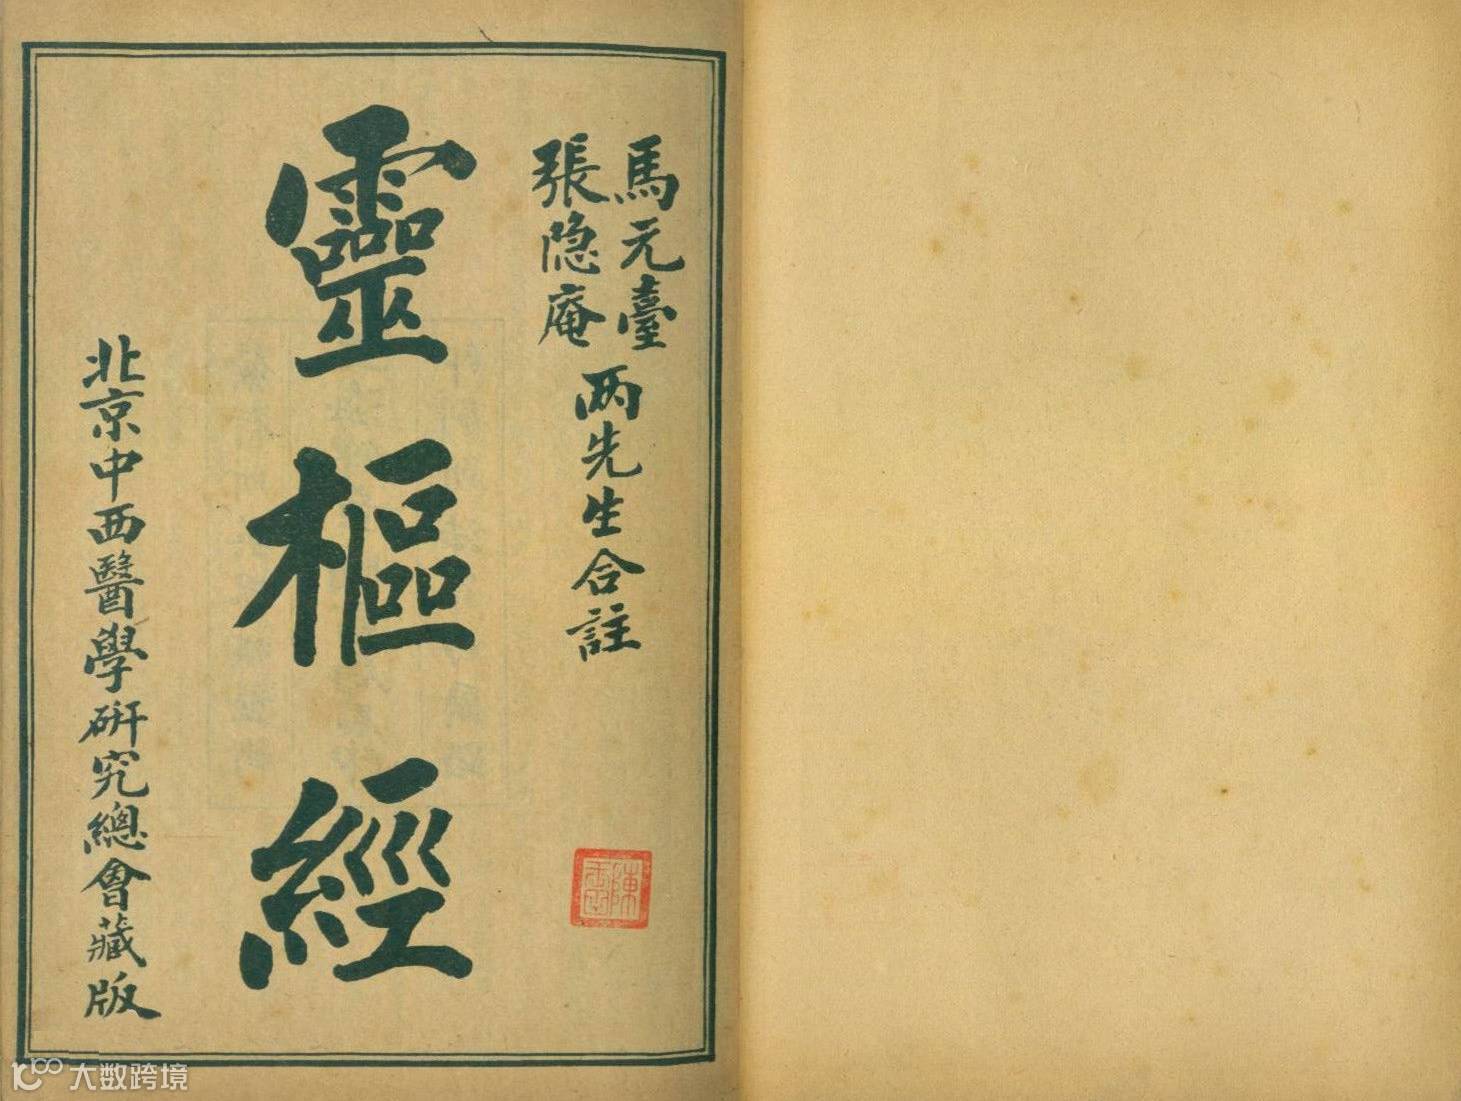 馬元臺
張隐庵
两先生合註
靈樞經
北京中西醫學研究總會藏版
大数跨境